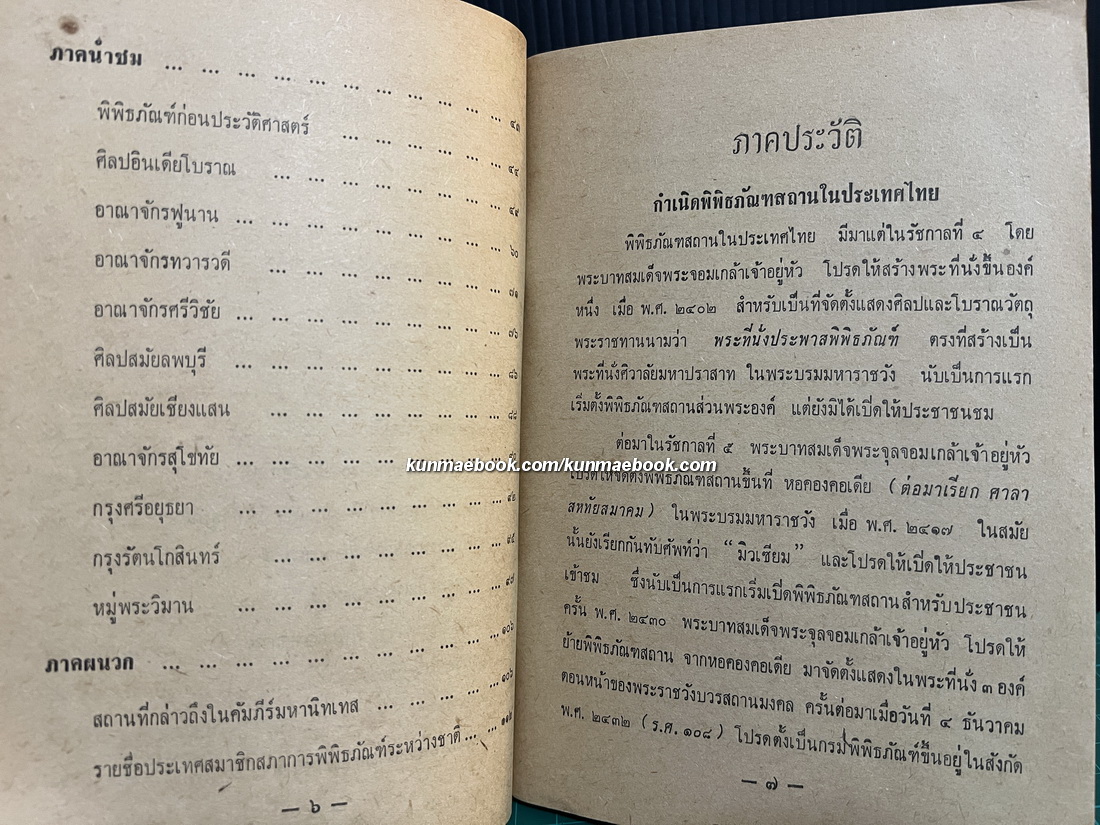 ภาคนำชม ... ... ... ... ... ... ... ... ... ... ๔๓
พิพิธภัณฑ์ก่อนประวัติศาสตร์ ... ... ... ... ... ๔๙
ศิลปอินเดียโบราณ ... ... ... ... ... ... ... ๔๙
อาณาจักรฟูนาน ... ... ... ... ... ... ... ... ๖๐
อาณาจักรทวารวดี ... ... ... ... ... ... ... ๗๑
อาณาจักรศรีวิชัย ... ... ... ... ... ... ... ... ๗๖
ศิลปสมัยลพบุรี ... ... ... ... ... ... ... ... ๘๖
ศิลปสมัยเชียงแสน ... ... ... ... ... ... ... ๘๘
อาณาจักรสุโขทัย ... ... ... ... ... ... ... ...
กรุงศรีอยุธยา ... ... ... ... ... ... ... ... ๙๒
กรุงรัตนโกสินทร์ ... ... ... ... ... ... ... ๙๕
หมู่พระวิมาน ... ... ... ... ... ... ... ... ๙๗
ภาคผนวก ... ... ... ... ... ... ... ... ... ... ๑๐๖
สถานที่กล่าวถึงในคัมภีร์มหานิทเทส ... ... ... ... ๑๐๖
รายชื่อประเทศสมาชิกสภาการพิพิธภัณฑ์ระหว่างชาติ ... ...
— ๖ —
ภาคประวัติ
กำเนิดพิพิธภัณฑสถานในประเทศไทย
พิพิธภัณฑสถานในประเทศไทย มีมาแต่ในรัชกาลที่ ๔ โดย
พระบาทสมเด็จพระจอมเกล้าเจ้าอยู่หัว โปรดให้สร้างพระที่นั่งขึ้นองค์
หนึ่ง เมื่อ พ.ศ. ๒๔๐๒ สำหรับเป็นที่จัดตั้งแสดงศิลปและโบราณวัตถุ
พระราชทานนามว่า พระที่นั่งประพาสพิพิธภัณฑ์ ตรงที่สร้างเป็น
พระที่นั่งศิวาลัยมหาปราสาท ในพระบรมมหาราชวัง นับเป็นการแรก
เริ่มตั้งพิพิธภัณฑสถานส่วนพระองค์ แต่ยังมิได้เปิดให้ประชาชนชม
ต่อมาในรัชกาลที่ ๕ พระบาทสมเด็จพระจุลจอมเกล้าเจ้าอยู่หัว
โปรดให้จัดตั้งพิพิธภัณฑสถานขึ้นที่ หอคองคอเดีย (ต่อมาเรียก ศาลา
สหทัยสมาคม) ในพระบรมมหาราชวัง เมื่อ พ.ศ. ๒๔๑๗ ในสมัย
นั้นยังเรียกกันทับศัพท์ว่า “มิวเซียม” และโปรดให้เปิดให้ประชาชน
เข้าชม ซึ่งนับเป็นการแรกเริ่มเปิดพิพิธภัณฑสถานสำหรับประชาชน
ครั้น พ.ศ. ๒๔๓๐ พระบาทสมเด็จพระจุลจอมเกล้าเจ้าอยู่หัว โปรดให้
ย้ายพิพิธภัณฑสถาน จากหอคองคอเดีย มาจัดตั้งแสดงในพระที่นั่ง ๓ องค์
ตอนหน้าของพระราชวังบวรสถานมงคล ครั้นต่อมาเมื่อวันที่ ๔ ธันวาคม
พ.ศ. ๒๔๓๒ (ร.ศ. ๑๐๘) โปรดตั้งเป็นกรมพิพิธภัณฑ์ขึ้นอยู่ในสังกัด
— ๗ —
kunmaebook.com/kunmaebook.com